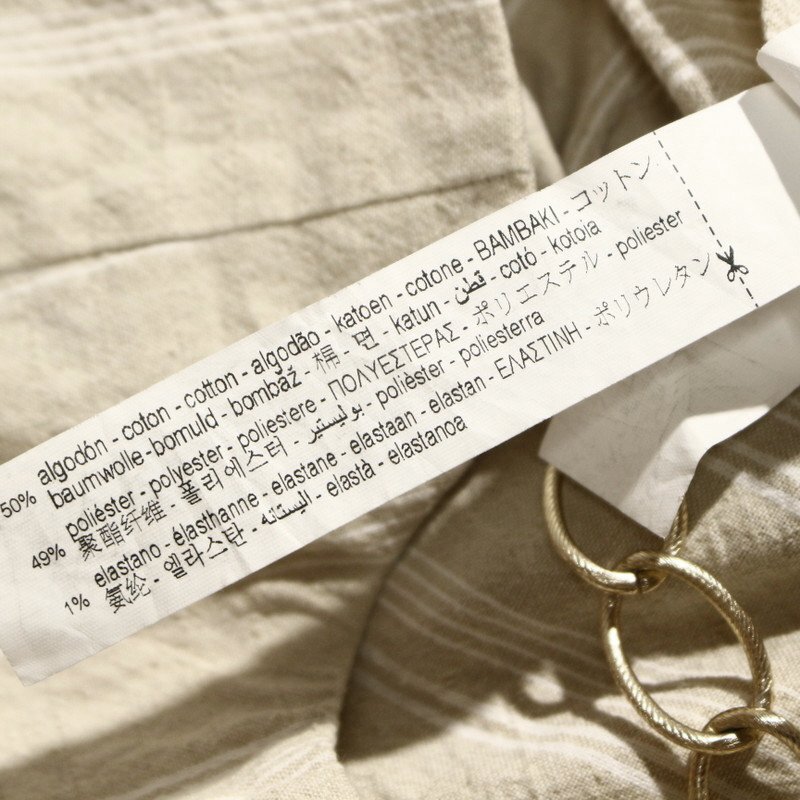 50% algodón - coton - cotton - algodão - katoen - cotone - BAMBAKI - コットン
baumwolle-bomuld - bombaž - 棉 - 면 - katun - قطن - cotó - kotoia
49% poliéster - polyester - poliestere - ΠΟΛΥΕΣΤΕΡΑΣ - ポリエステル - poliester
聚酯纤维 - 폴리에스터 - بوليستر - polièster - poliesterra
1% elastano - élasthanne - elastane - elastaan - elastan - ΕΛΑΣΤΙΝΗ - ポリウレタン
氨纶 - 엘라스탄 - اليستانه - elastà - elastanoa